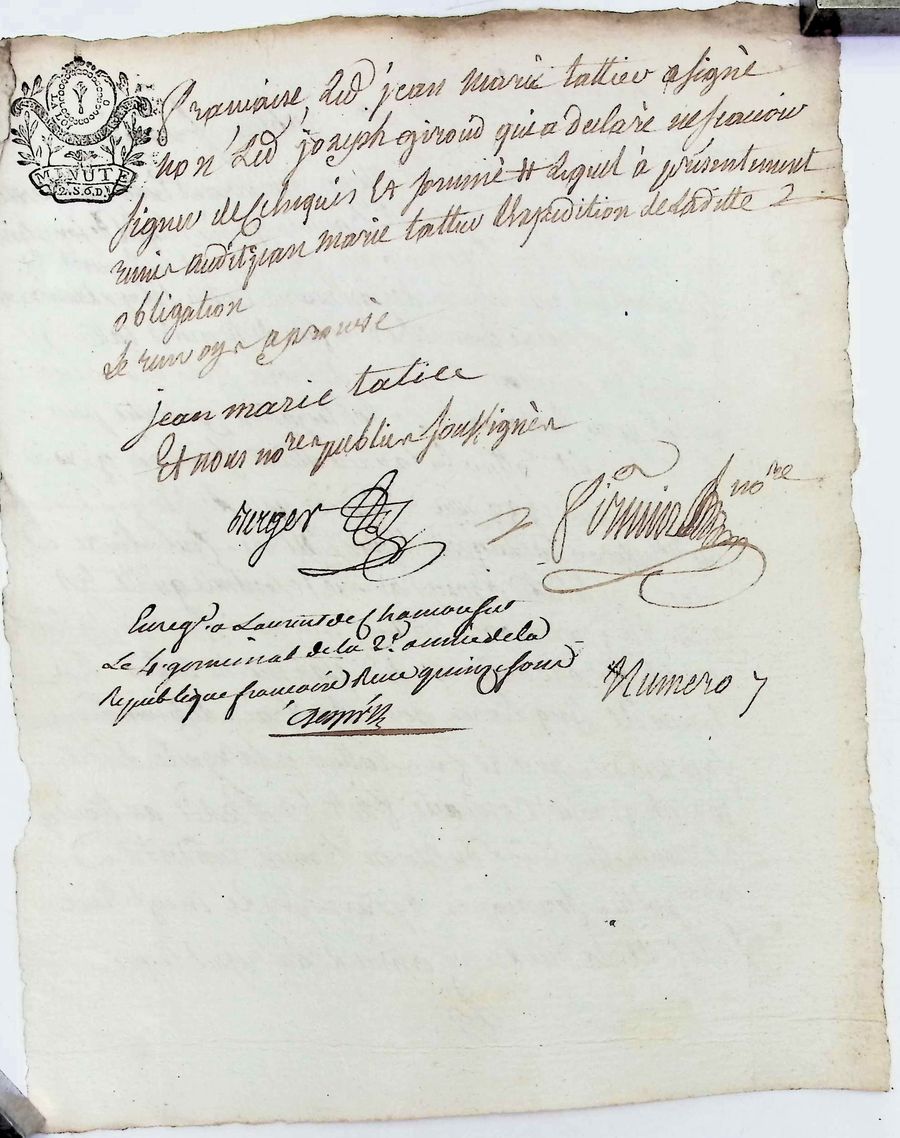 LA LOI
MINUTE
2.S.6.D.
francaise Led' jean marie tattier a signé
non Led' joseph giroud qui a declaré ne scavoir
signer de ce enquis Et sommé # Lequel à présentement
remis audit jean marie tattier L'expedition de Ladette
obligation
Le renvoy approuvé
jean marie tatiee
Et nous nores publics soussignés
Berger
Firmin nore
Enregt. a Laurent de Chamousset
Le 4. germinal de la 2e. année de la
Republique francaise Reçu quinze sous
Numero 7